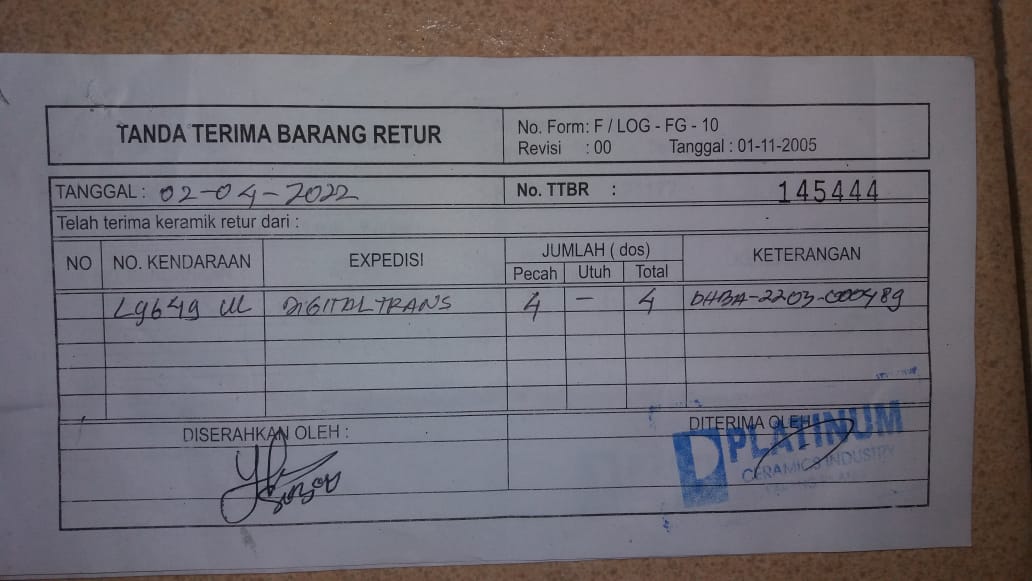 TANDA TERIMA BARANG RETUR
No. Form: F / LOG - FG - 10
Revisi : 00 Tanggal : 01-11-2005
TANGGAL : 02-04-2022
No. TTBR : 145444
Telah terima keramik retur dari :
NO NO. KENDARAAN EXPEDISI JUMLAH ( dos) KETERANGAN
Pecah Utuh Total
L9649 UL DIGITAL TRANS 4 — 4 DHBA-2203-000489
DISERAHKAN OLEH : DITERIMA OLEH
PLATINUM
CERAMICS INDUSTRY